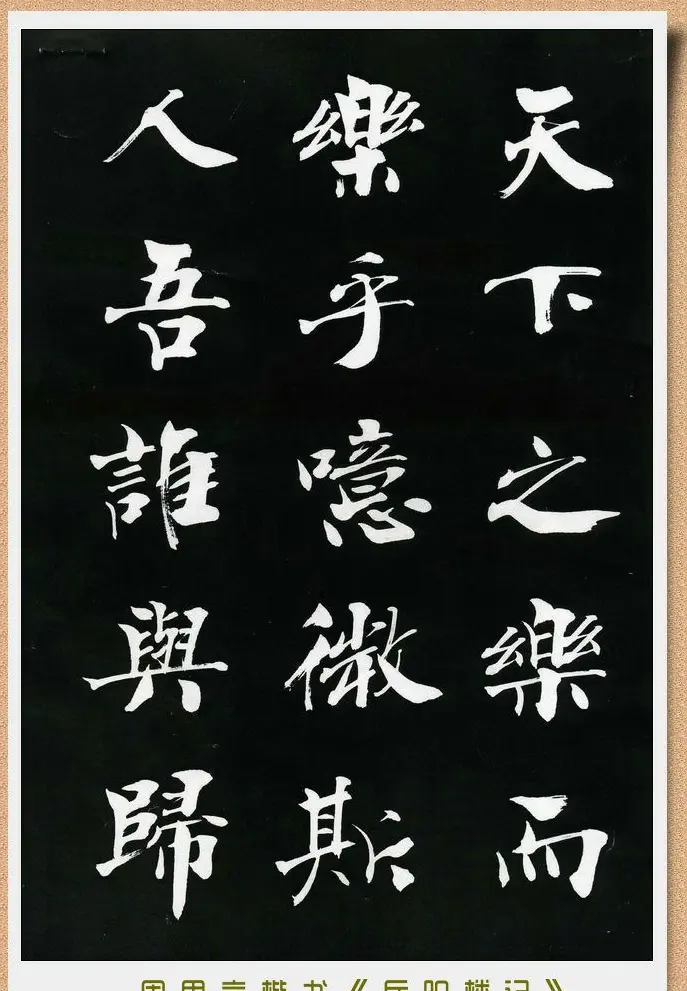 天下之樂而
樂乎噫微斯
人吾誰與歸
楷书《岳阳楼记》